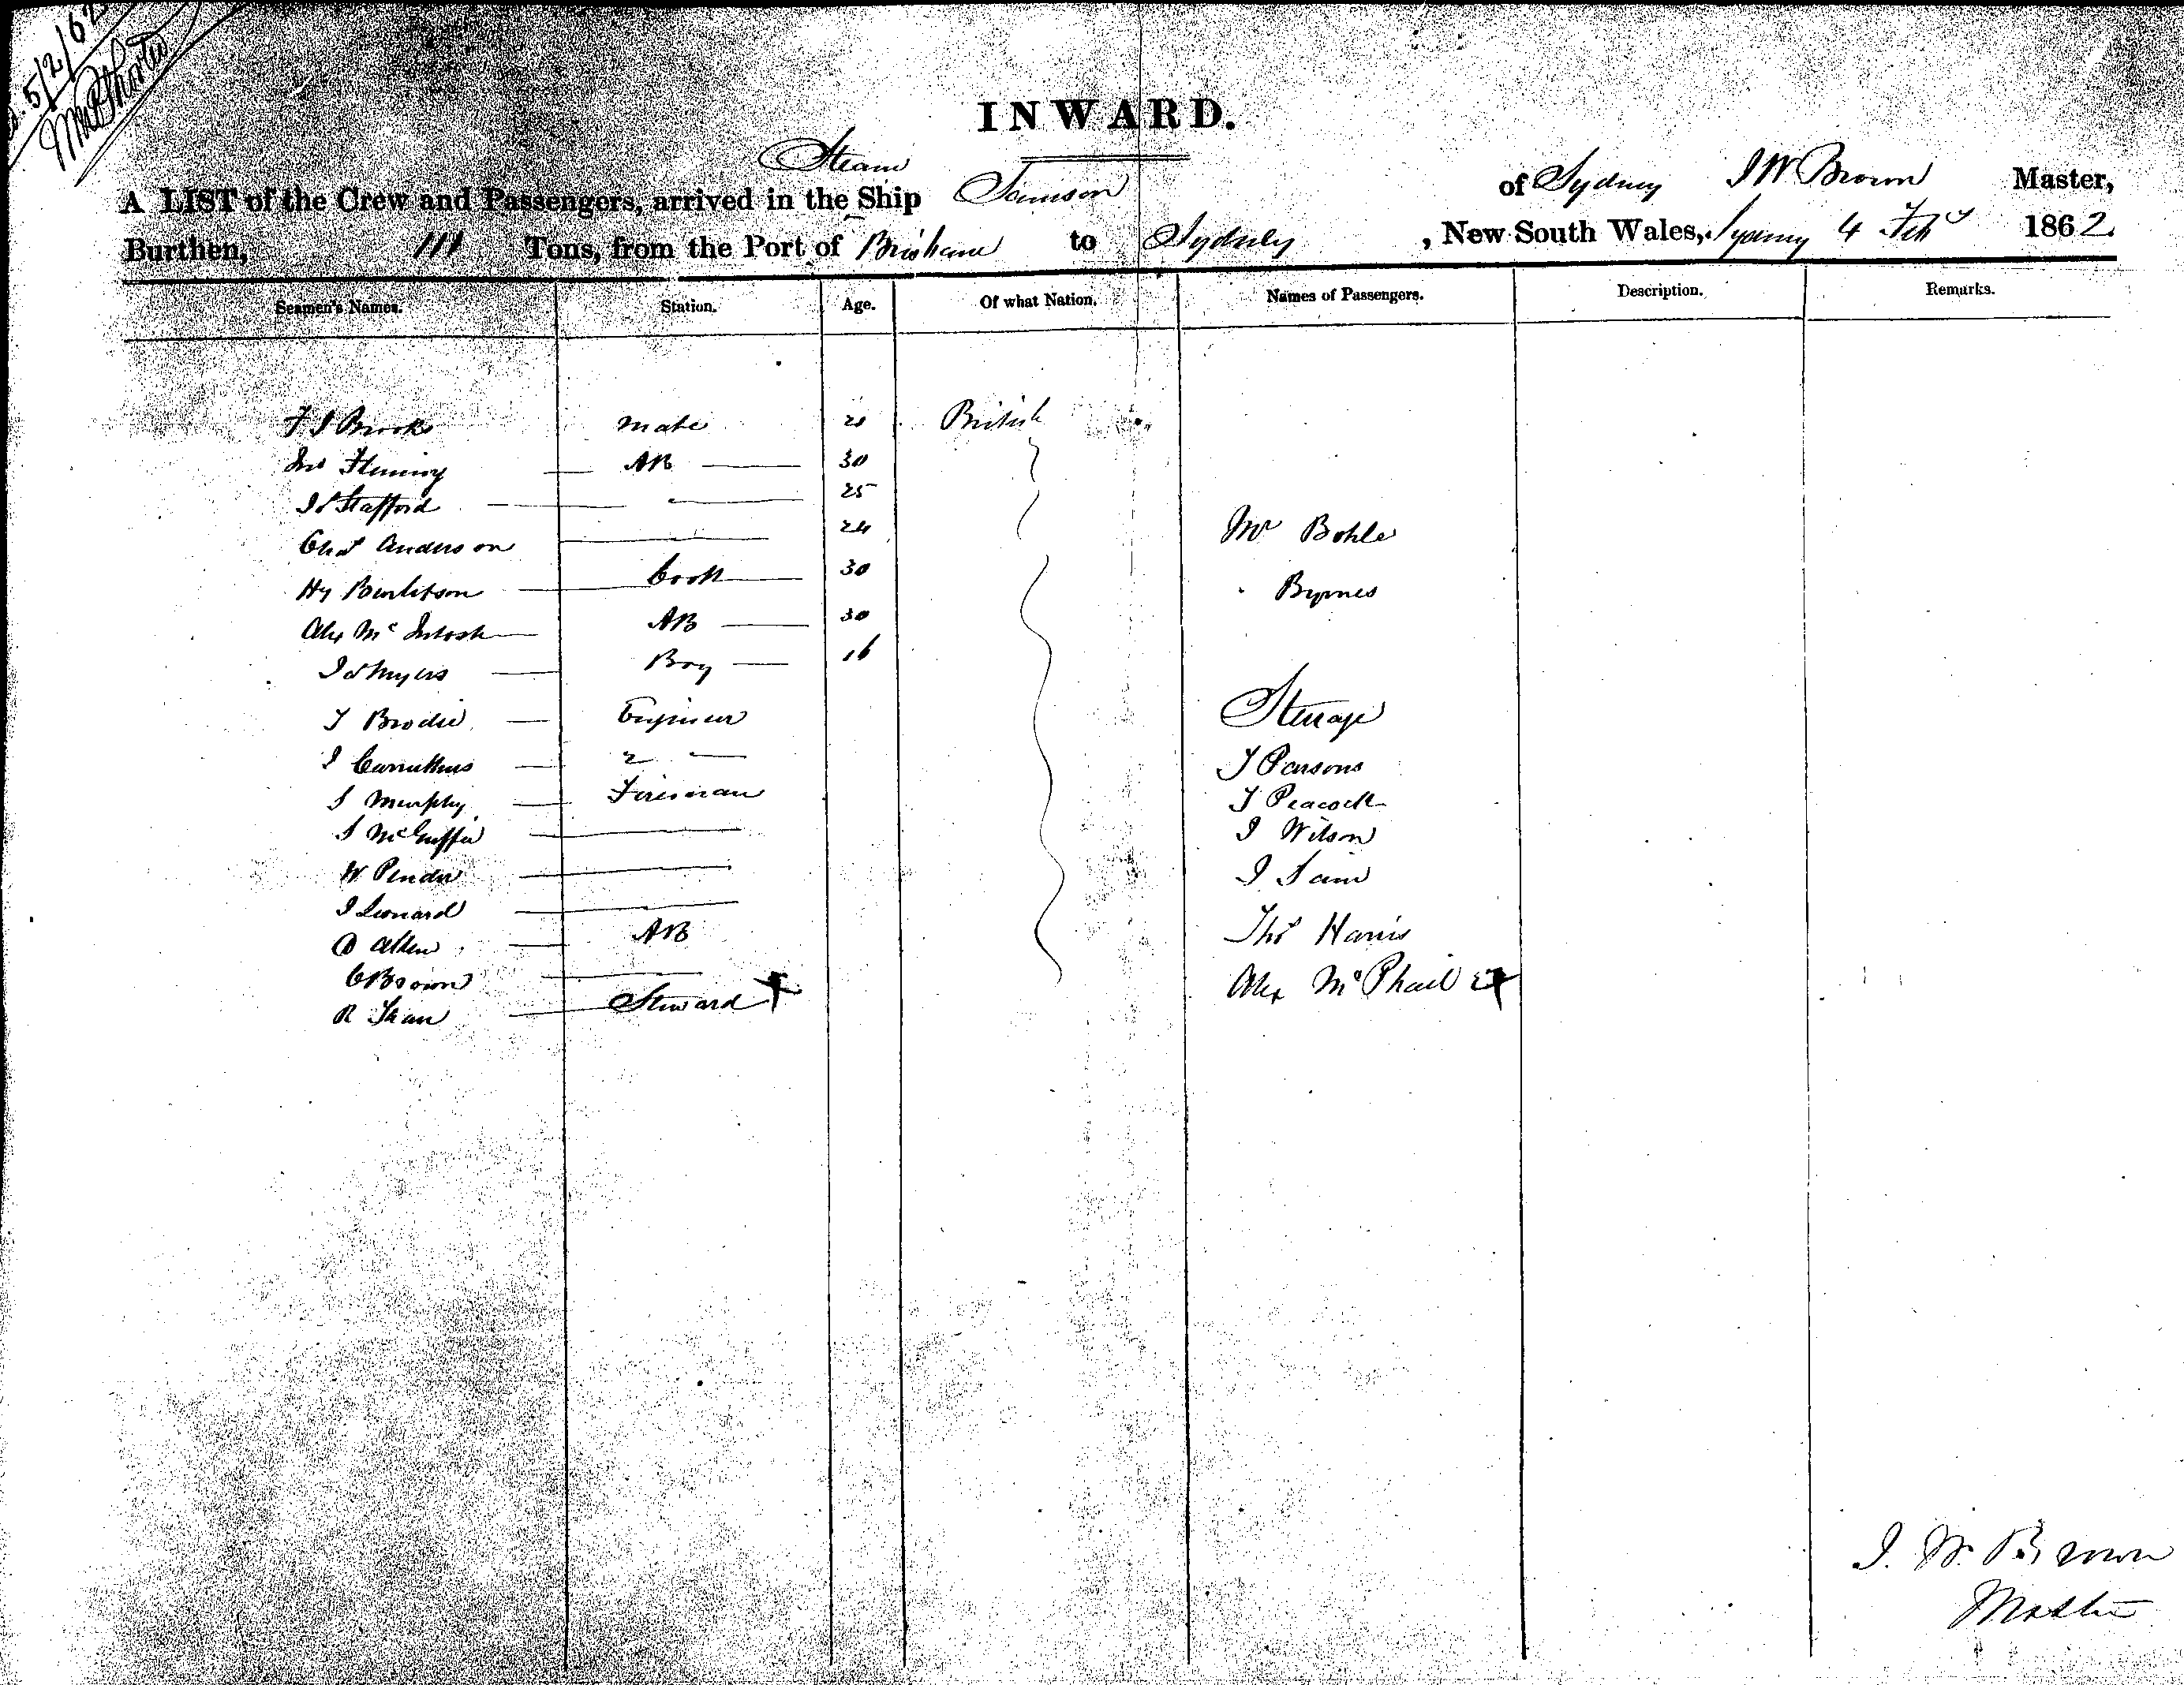 5/2/62
INWARD.
Steam
A LIST of the Crew and Passengers, arrived in the Ship Samson of Sydney J W Brown Master,
Burthen, 111 Tons, from the Port of Brisbane to Sydney, New South Wales, Sydney 4 Feby 1862
Seamen's Names. Station. Age. Of what Nation. Names of Passengers. Description. Remarks.
F J Brook mate British
Jno Fleming AB 30
Js Stafford 25
Chas Anderson 24 Mr Bohle
Hy Burletson Cook 30 Byrnes
Alex McIntosh AB 30
Js Myers Boy 16
T Brodie Engineer Steerage
J Carruthers 2 J Parsons
J Murphy Fireman J Peacock
J McGuffie J Wilson
W Pender J Sain
J Leonard
D Allen AB Thos Harris
C Brown Alex McPhail
R Steward
J. W. Brown
Master